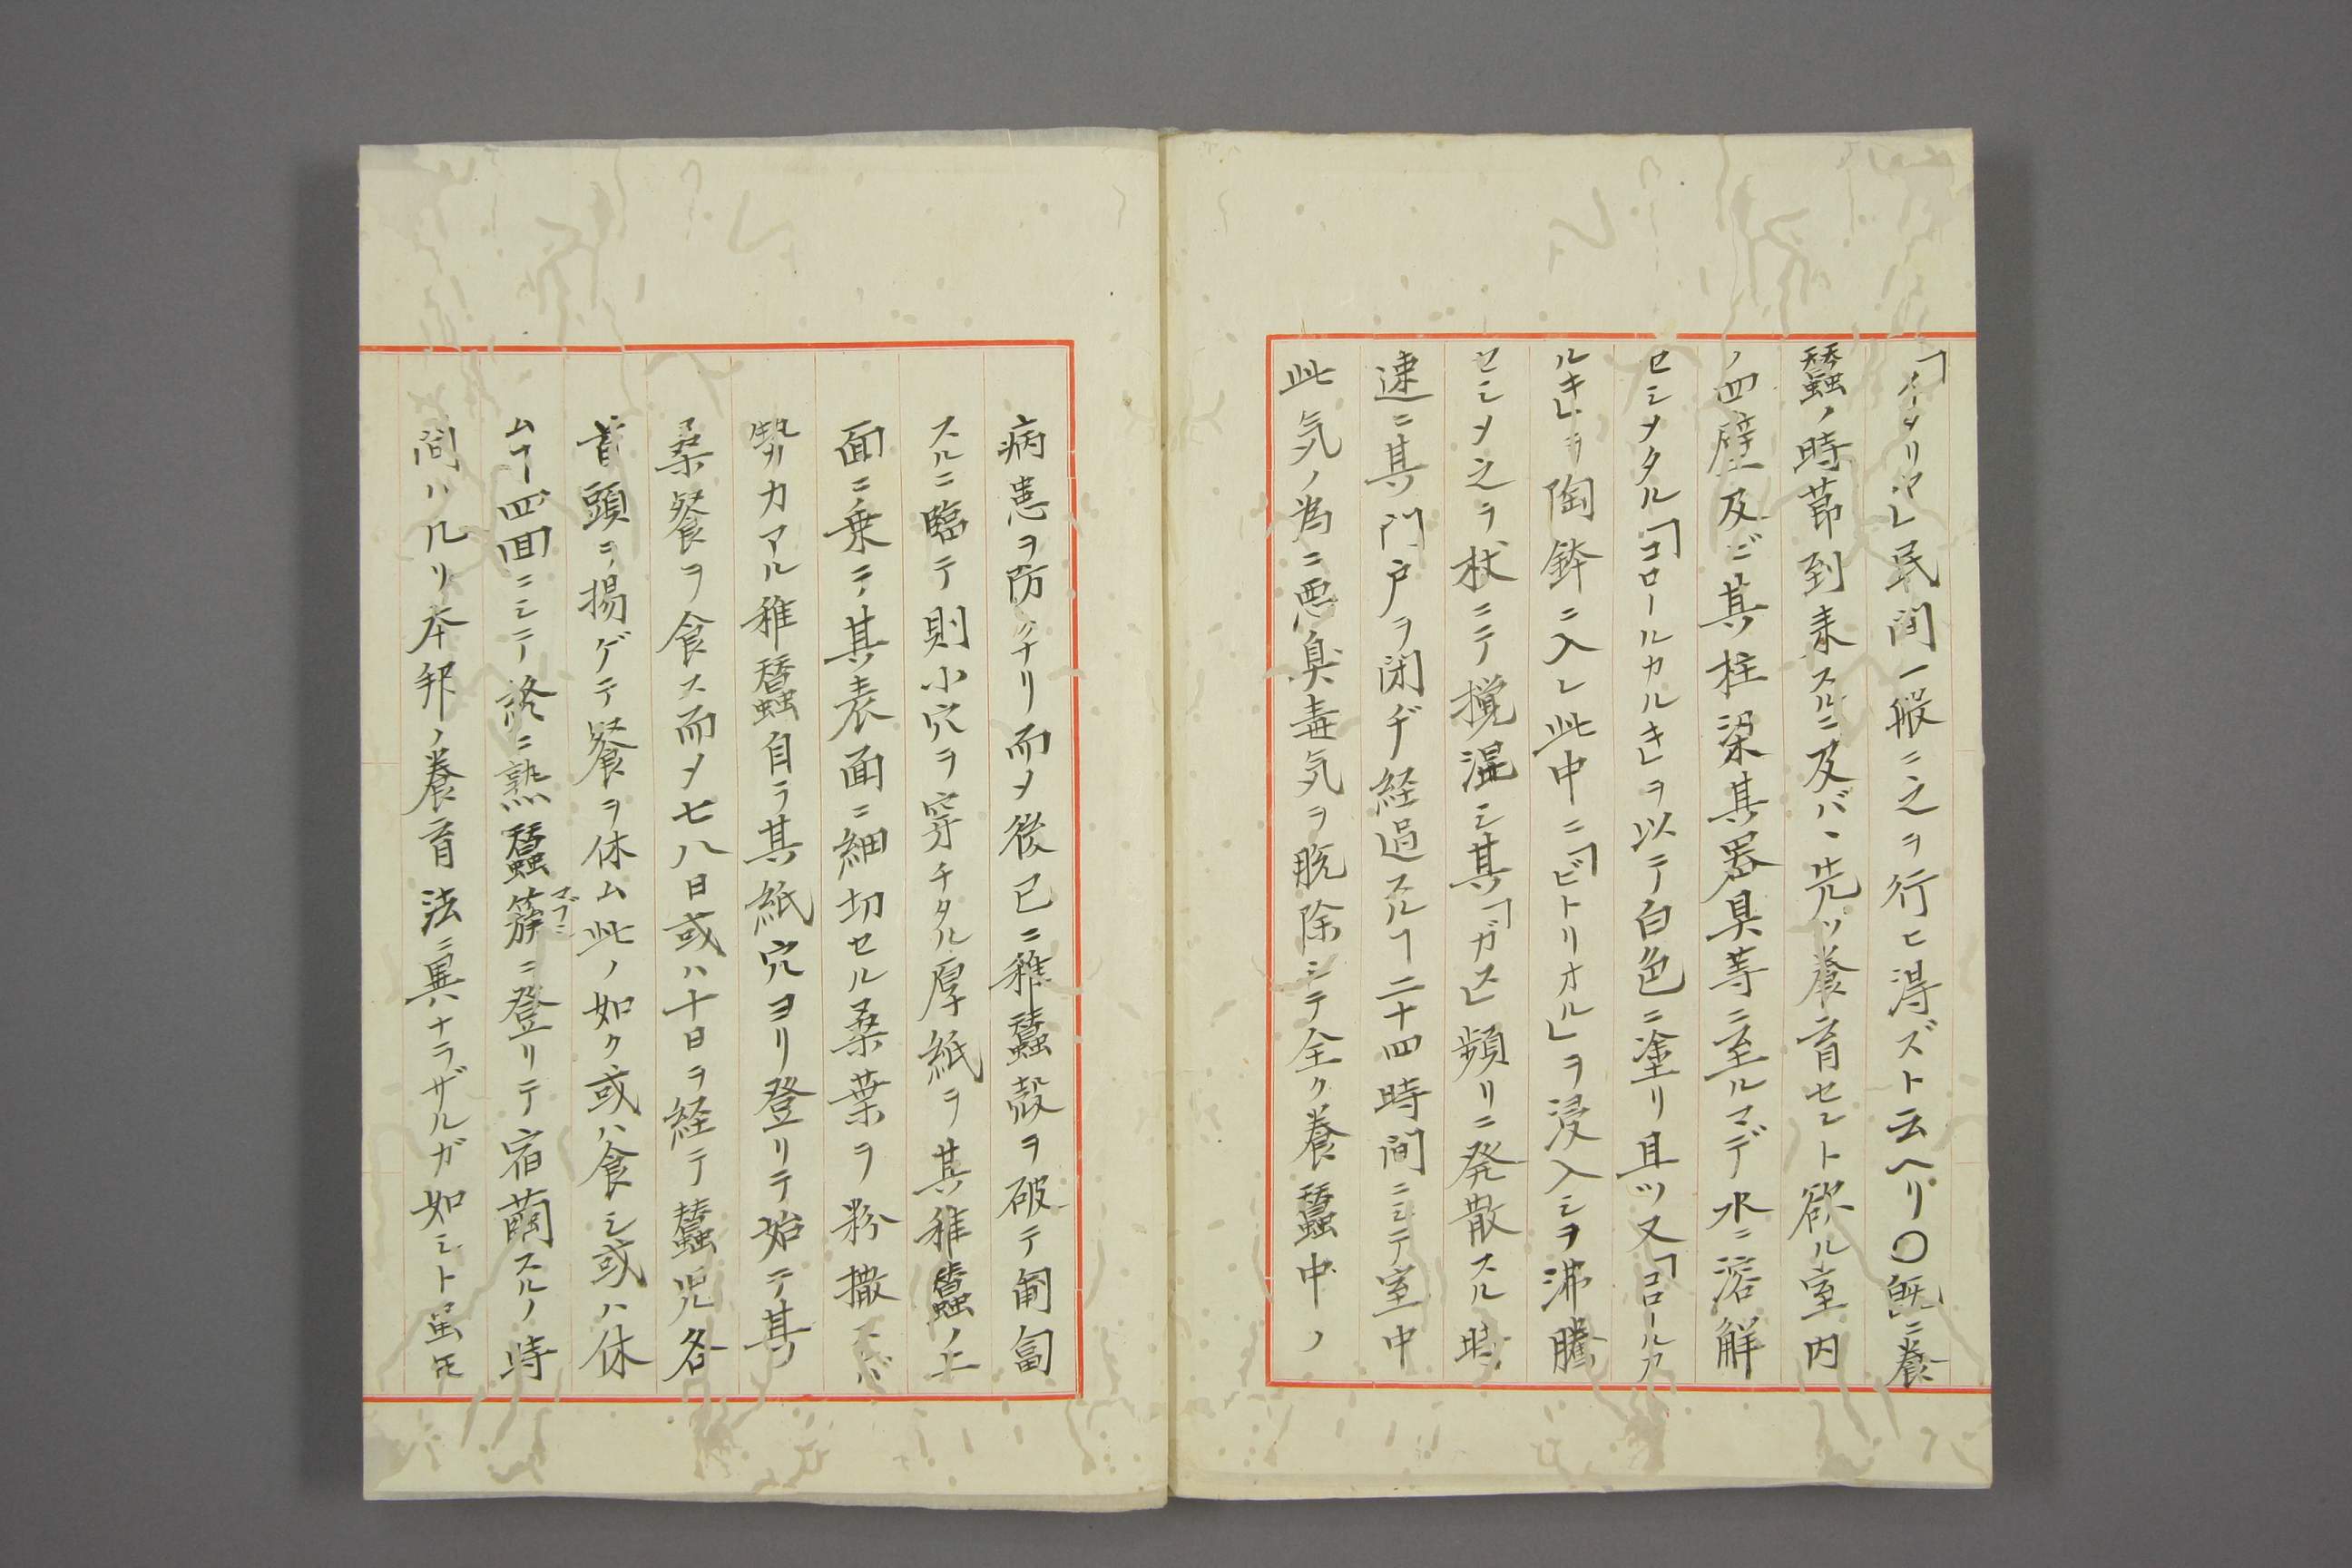 「イタリヤ」民間一般ニ之ヲ行ヒ得ズト云ヘリ〇既ニ養
蠶ノ時節到来スルニ及バヽ先ツ養育セント欲ル室内
ノ四壁及ビ其柱梁其器具等ニ至ルマデ水ニ溶解
セシメタル「コロールカルキ」ヲ以テ白色ニ塗リ且ツ又「コロールカ
ルキ」ヲ陶鉢ニ入レ此中ニ「ビトリオル」ヲ浸入シヲ沸騰
セシメ之ヲ杖ニテ攪混シ其「ガス」頻リニ発散スル時
速ニ其門戸ヲ閉ヂ経過スルヿ二十四時間ニシテ室中
此気ノ為ニ悪臭毒気ヲ脱除シテ全ク養蠶中ノ
病患ヲ防クナリ而メ後已ニ稚蠶殻ヲ破テ匍匐
スルニ臨テ則小穴ヲ穿チタル厚紙ヲ其稚蠶ノ上
面ニ乗テ其表面ニ細切セル桑葉ヲ粉撒スバ
勢力アル稚蠶自ラ其紙穴ヨリ登リテ始テ其
桑餐ヲ食ス而メ七八日或ハ十日ヲ経テ蠶児各
首頭ヲ揚ゲテ餐ヲ休ム此ノ如ク或ハ食シ或ハ休
ムヿ四回ニシテ終ニ熟蠶簇マブシニ登リテ宿繭スルノ時
間ハ凡リ本邦ノ養育法ニ異ナラザルガ如シト虽モ